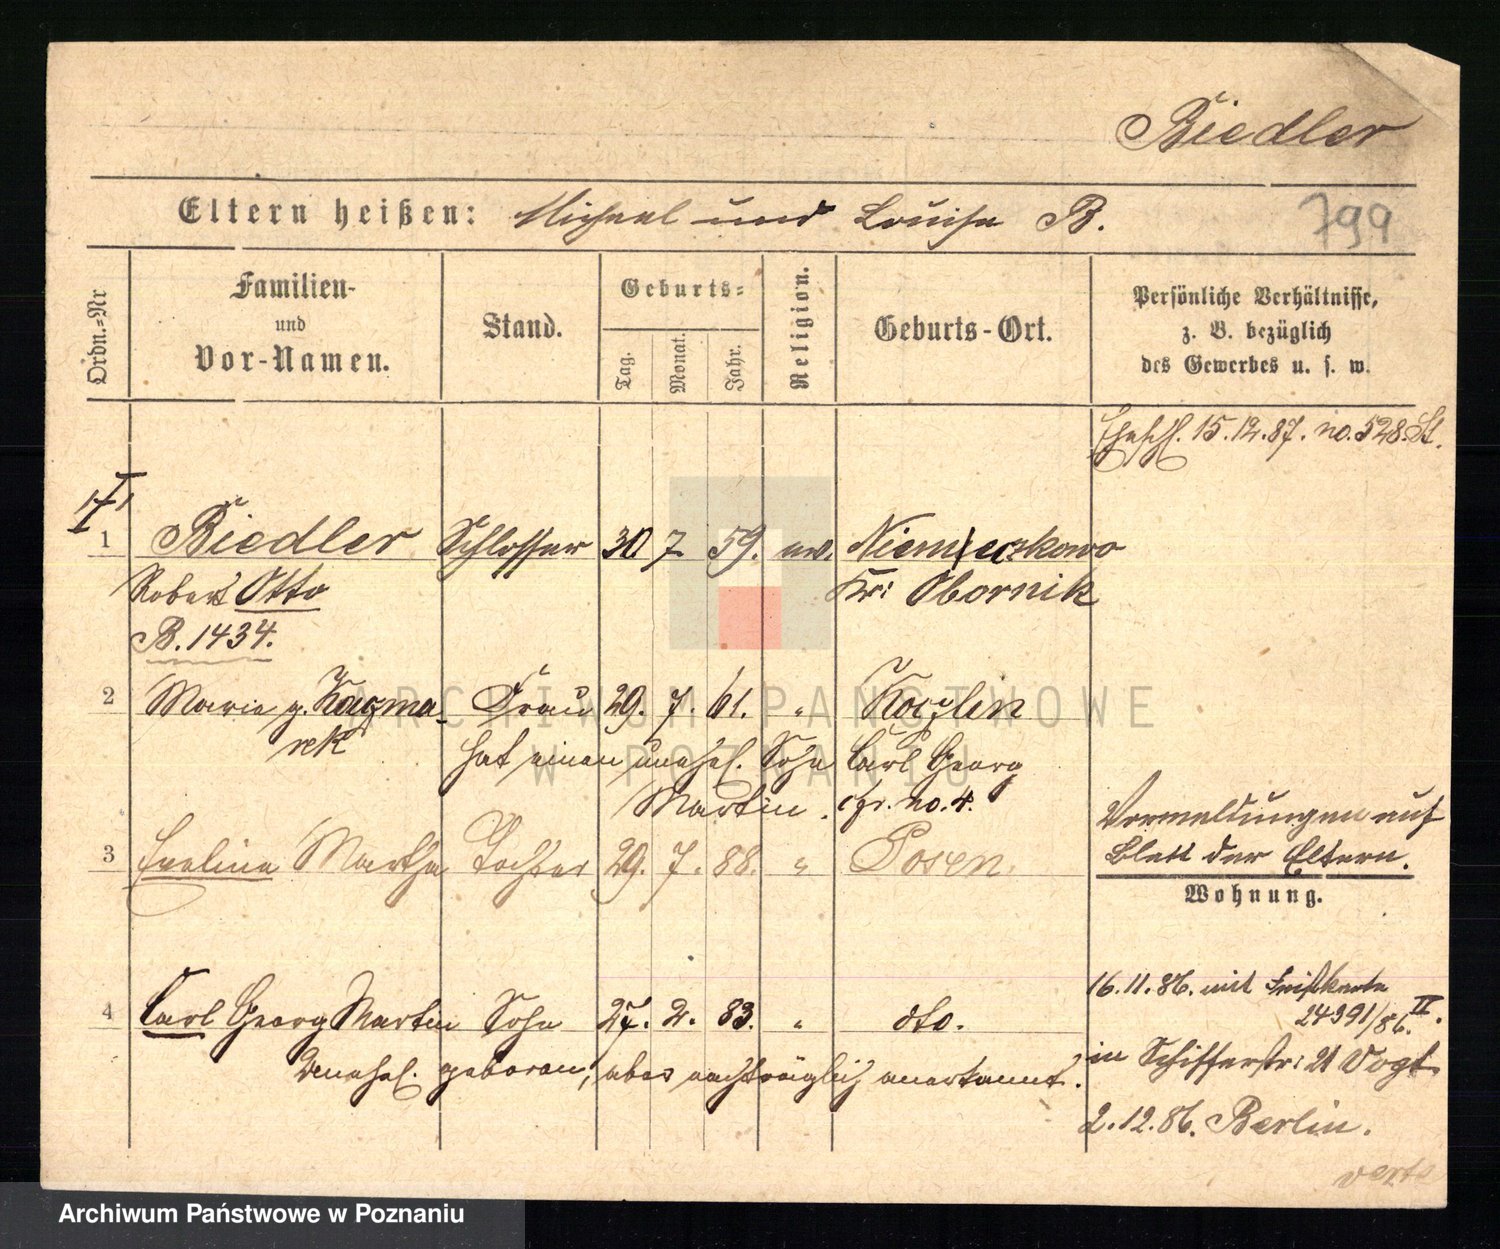 Biedler
Eltern heißen: Michael und Louise B. 799
Ordn.=Nr
Familien- und Vor-Namen.
Stand.
Geburts=
Tag. Monat. Jahr.
Religion.
Geburts-Ort.
Persönliche Verhältnisse,
z. B. bezüglich
des Gewerbes u. s. w.
Eheschl. 15.12.87. no. 528. St.
1 Biedler Schlosser 30 7 59. ev. Niemieczkowo
Robert Otto Kr: Obornik
B. 1434.
2 Marie g. Kaczma- Frau 29. 7. 61. " Koczlin
rek hat einen unehel. Sohn Carl Georg
Martin. cfr. no. 4.
Vormeldungen auf
3 Eveline Martha Tochter 29. 7. 88. " Posen.
Blatt der Eltern.
Wohnung.
16.11.86. mit
24391/86. II.
4 Carl Georg Martin Sohn 27. 2. 83. " dto.
Unehel. geboren, aber nachträglich anerkannt.
in Schifferstr: 21 Vogt
2.12.86. Berlin.
verte
ARCHIWUM PAŃSTWOWE
W POZNANIU
Archiwum Państwowe w Poznaniu